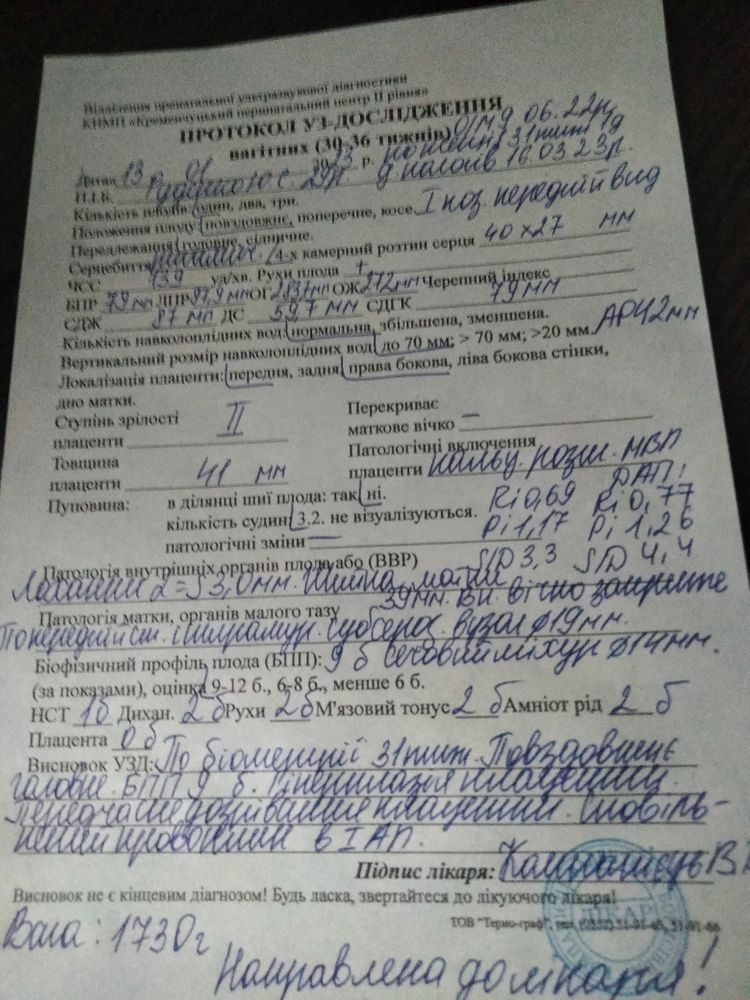 Відділення пренатальної ультразвукової діагностики
КНМП «Кременчуцький перинатальний центр ІІ рівня»
ПРОТОКОЛ УЗ-ДОСЛІДЖЕННЯ
вагітних (30-36 тижнів) 06.22р
Дата 13 01 2023 р. 31тижн
П.І.Б. 29р. пологів 16.03 23р.
Кількість плодів один, два, три.
Положення плоду повздовжнє, поперечне, косе. І поз. передній вид
Передлежання головне, сідничне.
Серцебиття 4-х камерний розтин серця 40х27 мм
ЧСС 139 уд/хв. Рухи плода +
БПР 79мм ЛПР мм ОГ мм ОЖ 272мм Черепний індекс
СДЖ 87 мм ДС 59,7 мм СДГК 79мм
Кількість навколоплідних вод: нормальна, збільшена, зменшена.
Вертикальний розмір навколоплідних вод до 70 мм; > 70 мм; >20 мм.
Локалізація плаценти: передня, задня, права бокова, ліва бокова стінки,
дно матки.
Ступінь зрілості плаценти ІІ
Перекриває маткове вічко –
Товщина плаценти 41 мм
Патологічні включення плаценти кальц. розш. МВП
Пуповина: в ділянці шиї плода: так, ні. ДАП!
кількість судин 3.2. не візуалізуються. Ri 0,69 Ri 0,77
патологічні зміни — Pi 1,17 Pi 1,26
Патологія внутрішніх органів плода або (ВВР) S/D 3,3 S/D 4,4
Лоханки 3,0мм. Шийка матки
Патологія матки, органів малого тазу 39мм. Вн. вічко закрите
По передній ст. інтрамур. субсероз. вузол ø19мм.
Біофізичний профіль плода (БПП): 9 б сечовий міхур ø14мм.
(за показами), оцінка 9-12 б., 6-8 б., менше 6 б.
НСТ 1б Дихан. 2б Рухи 2б М'язовий тонус 2 б Амніот рід 2 б
Плацента 0б
Висновок УЗД: По біометрії 31тиж. Повздовжнє
головне. БПП 9 б. Гіперплазія плаценти.
Передчасне дозрівання плаценти. Сповіль-
нений кровоплин в І АП.
Підпис лікаря:
Висновок не є кінцевим діагнозом! Будь ласка, звертайтеся до лікуючого лікаря!
ТОВ "Терно-граф", тел.
Вага: 1730г
Направлена до лікаря!